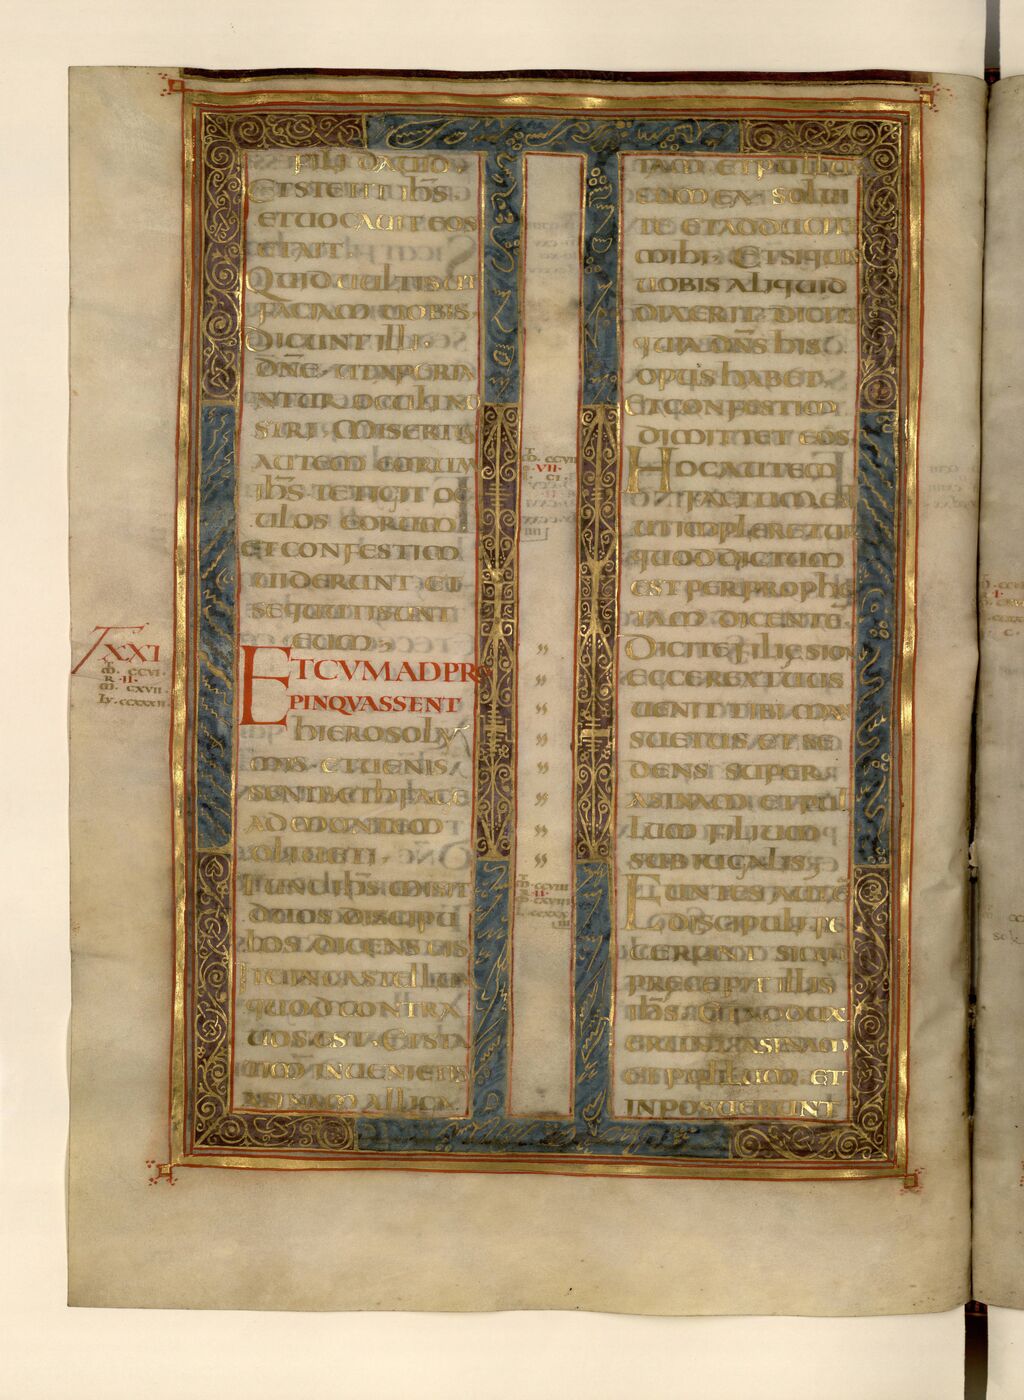 FILI DAUID
ET STETIT IHS
ET UOCAUIT EOS
ET AIT
QUID UULTIS UT
FACIAM UOBIS
DICUNT ILLI
DNE UT APERIA
NTUR OCULI NO
STRI MISERTUS
AUTEM EORUM
IHS TETIGIT OC
ULOS EORUM
ET CONFESTIM
UIDERUNT ET
SEQUUTI SUNT
EUM
TXXI
M CCVI
R II
M CXVII
ET CVM ADPRO
PINQVASSENT
HIEROSOLY
MIS ET UENIS
SENT BETHFAGE
AD MONTEM
OLIUETI
TUNC IHS MISIT
DUOS DISCIPU
LOS DICENS EIS
ITE IN CASTELLUM
QUOD CONTRA
UOS EST ET STA
TIM INUENIETIS
ASINAM ALLIGA
M CCVII
VII
CI
M CCVIII
II
M CXVIII
TAM ET PULLU
CUM EA SOLUI
TE ET ADDUCITE
MIHI ET SI QUIS
UOBIS ALIQUID
DIXERIT DICITE
QUIA DNS HIS
OPUS HABET
ET CONFESTIM
DIMITTET EOS
HOC AUTEM
FACTUM EST
UT IMPLERETUR
QUOD DICTUM
EST PER PROPHE
TAM DICENTE
DICITE FILIE SION
ECCE REX TUUS
UENIT TIBI MAN
SUETUS ET SE
DENS SUPER
ASINAM ET PUL
LUM FILIUM
SUBIUGALIS
EUNTES AUTE
DISCIPULI FE
CERUNT SICUT
PRECEPIT ILLIS
IHS ET ADDUX
ERUNT ASINAM
ET PULLUM ET
INPOSUERUNT